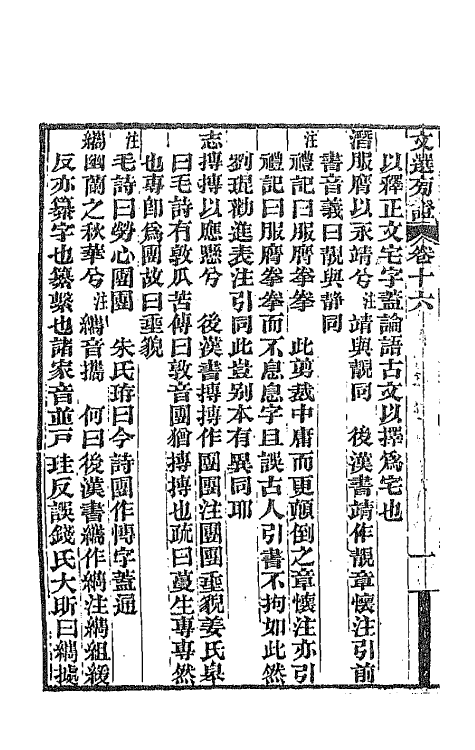 文選旁證 卷十六
以釋正文宅字葢論語古文以擇爲宅也
潛服膺以永靖兮注靖與靚同　後漢書靖作靚章懷注引前
書音義曰靚與靜同
注禮記曰服膺拳拳　此剪裁中庸而更顛倒之章懷注亦引
禮記曰服膺拳拳而不息息字且誤古人引書不拘如此然
劉琨勸進表注引同此豈别本有異同耶
志摶摶以應懸兮　後漢書摶摶作團團注團團垂貌姜氏皋
曰毛詩有敦瓜苦傳曰敦音團猶摶摶也疏曰蔓生專專然
也專卽爲團故曰垂貌
注毛詩曰勞心團團　朱氏珔曰今詩團作慱字葢通
纗幽蘭之秋華兮注纗音攜　何曰後漢書纗作纗注纗組綬
反亦纂字也纂繫也諸家音並戸珪反誤錢氏大昕曰纗據